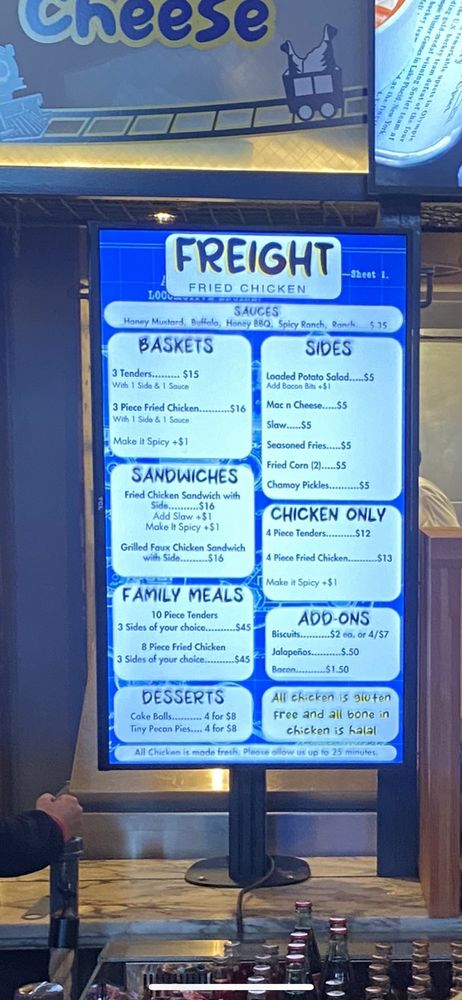 Cheese
FREIGHT
FRIED CHICKEN
Sheet 1.
SAUCES
Honey Mustard, Buffalo, Honey BBQ, Spicy Ranch, Ranch.... $.35
BASKETS
3 Tenders......... $15
With 1 Side & 1 Sauce
3 Piece Fried Chicken..........$16
With 1 Side & 1 Sauce
Make it Spicy +$1
SIDES
Loaded Potato Salad.....$5
Add Bacon Bits +$1
Mac n Cheese.....$5
Slaw.....$5
Seasoned Fries.....$5
Fried Corn (2).....$5
Chamoy Pickles..........$5
SANDWICHES
Fried Chicken Sandwich with
Side..........$16
Add Slaw +$1
Make It Spicy +$1
Grilled Faux Chicken Sandwich
with Side.........$16
CHICKEN ONLY
4 Piece Tenders..........$12
4 Piece Fried Chicken..........$13
Make it Spicy +$1
FAMILY MEALS
10 Piece Tenders
3 Sides of your choice..........$45
8 Piece Fried Chicken
3 Sides of your choice..........$45
ADD-ONS
Biscuits..........$2 ea. or 4/$7
Jalapeños..........$.50
Bacon..........$1.50
DESSERTS
Cake Balls.......... 4 for $8
Tiny Pecan Pies.... 4 for $8
All chicken is gluten
free and all bone in
chicken is halal
All Chicken is made fresh. Please allow us up to 25 minutes.